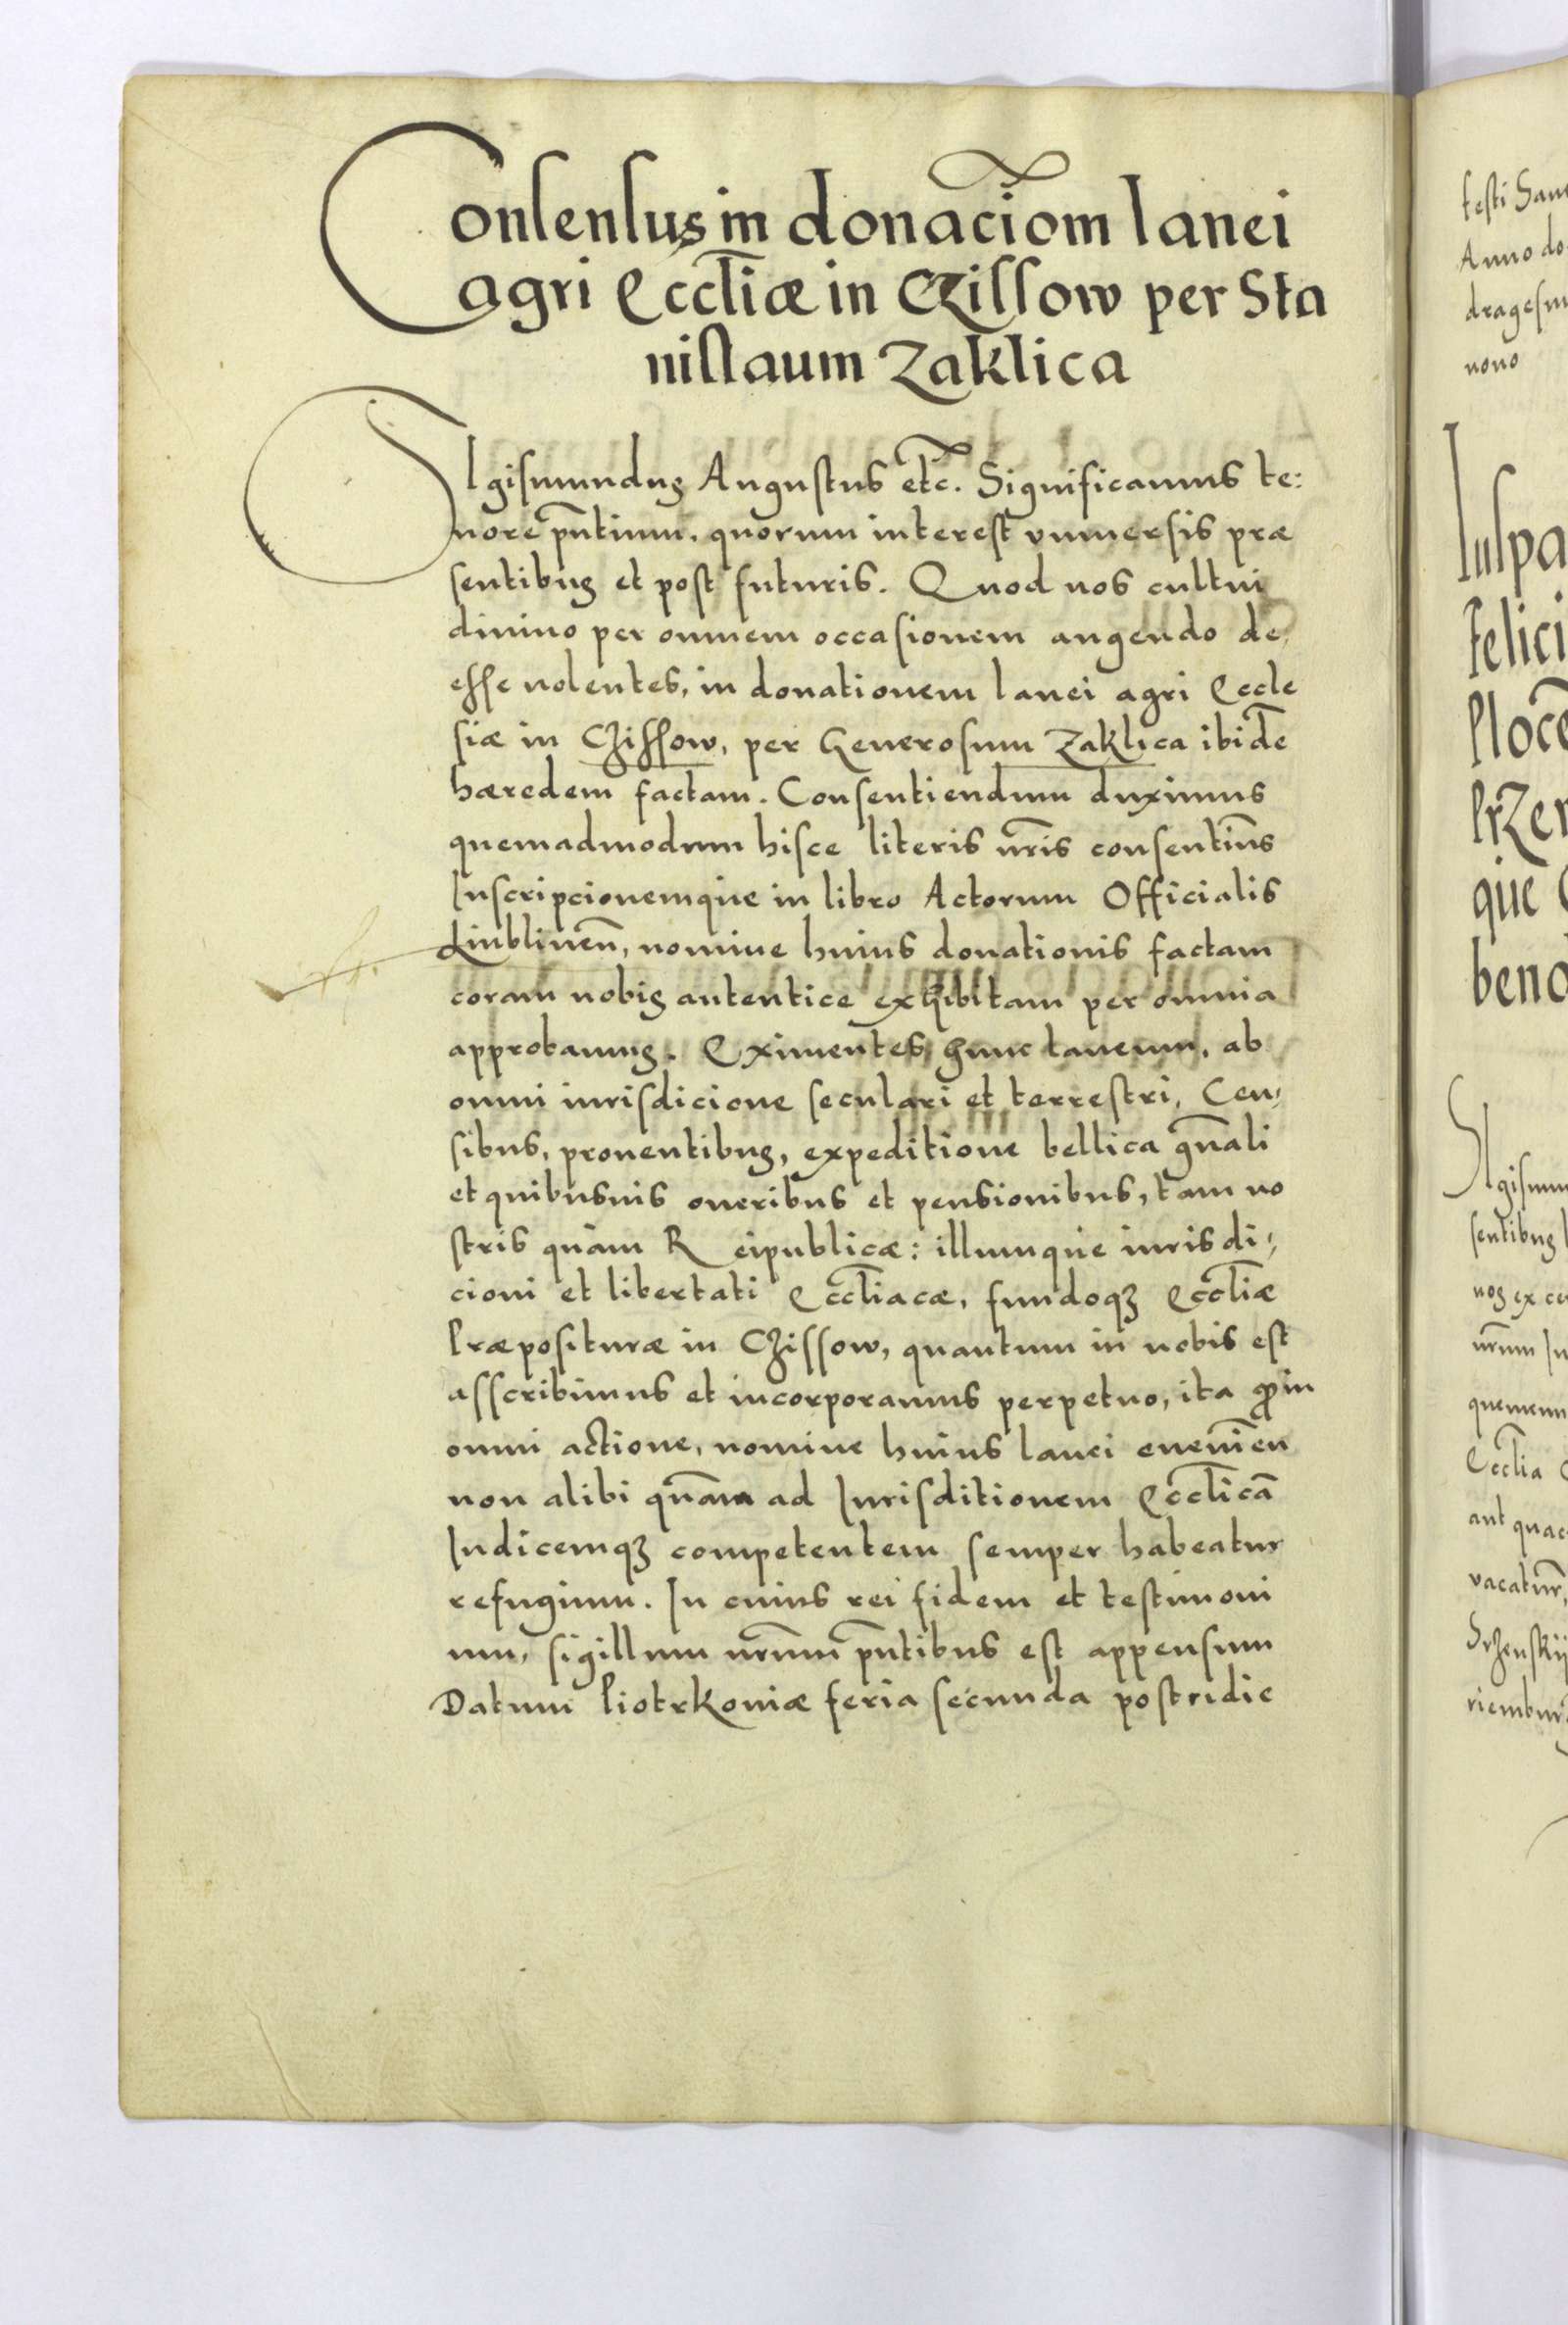 Consensus in donac̄iom lanei
agri Eccl̄iæ in Czissow per Sta
nislaum Zaklica
Sigismundus Augustus etc. Significamus te:
nore p̄ntium, quorum interest vniuersis præ
sentibus et post futuris. Quod nos cultui
diuino per omnem occasionem augendo de,
esse nolentes, in donationem lanei agri Eccle
siæ in Czissow, per Generosum Zaklica ibidē
hæredem factam. Consentiendum duximus
quemadmodum hisce literis nr̄is consentim̄s
Inscripcionemque in libro Actorum Officialis
Liublinen̄, nomine huius donationis factam
coram nobis autentice exhibitam per omnia
approbamus. Eximentes hunc laneum, ab
omni iurisdicione seculari et terrestri, Cen,
sibus, prouentibus, expeditione bellica gn̄ali
et quibusuis oneribus et pensionibus, tam no
stris quàm R eipublicæ: illumque iurisdi,
cioni et libertati Eccl̄iacæ, fundoqȝ Eccl̄iæ
Præposituræ in Czissow, quantum in nobis est
asscribimus et incorporamus perpetuo, ita ꝙ in
omni actione, nomine huius lanei eueni̅en
non alibi qu̅am ad Iurisditionem Eccl̄icā
Iudicemqȝ competentem semper habeatur
refugium. In cuius rei fidem et testimoni
um, sigillum nr̄um p̄ntibus est appensum
Datum Piotrkouiæ feria secunda postridie
festi San
Anno do
dragesim
nono
Iuspa
felici
Plocē
Przem
que
beno
Sigism
sentibus
nos ex ce
nr̄um In
quemcun
Eccl̄ia
aut quac
vacatur̄,
Srzenskij
riembur